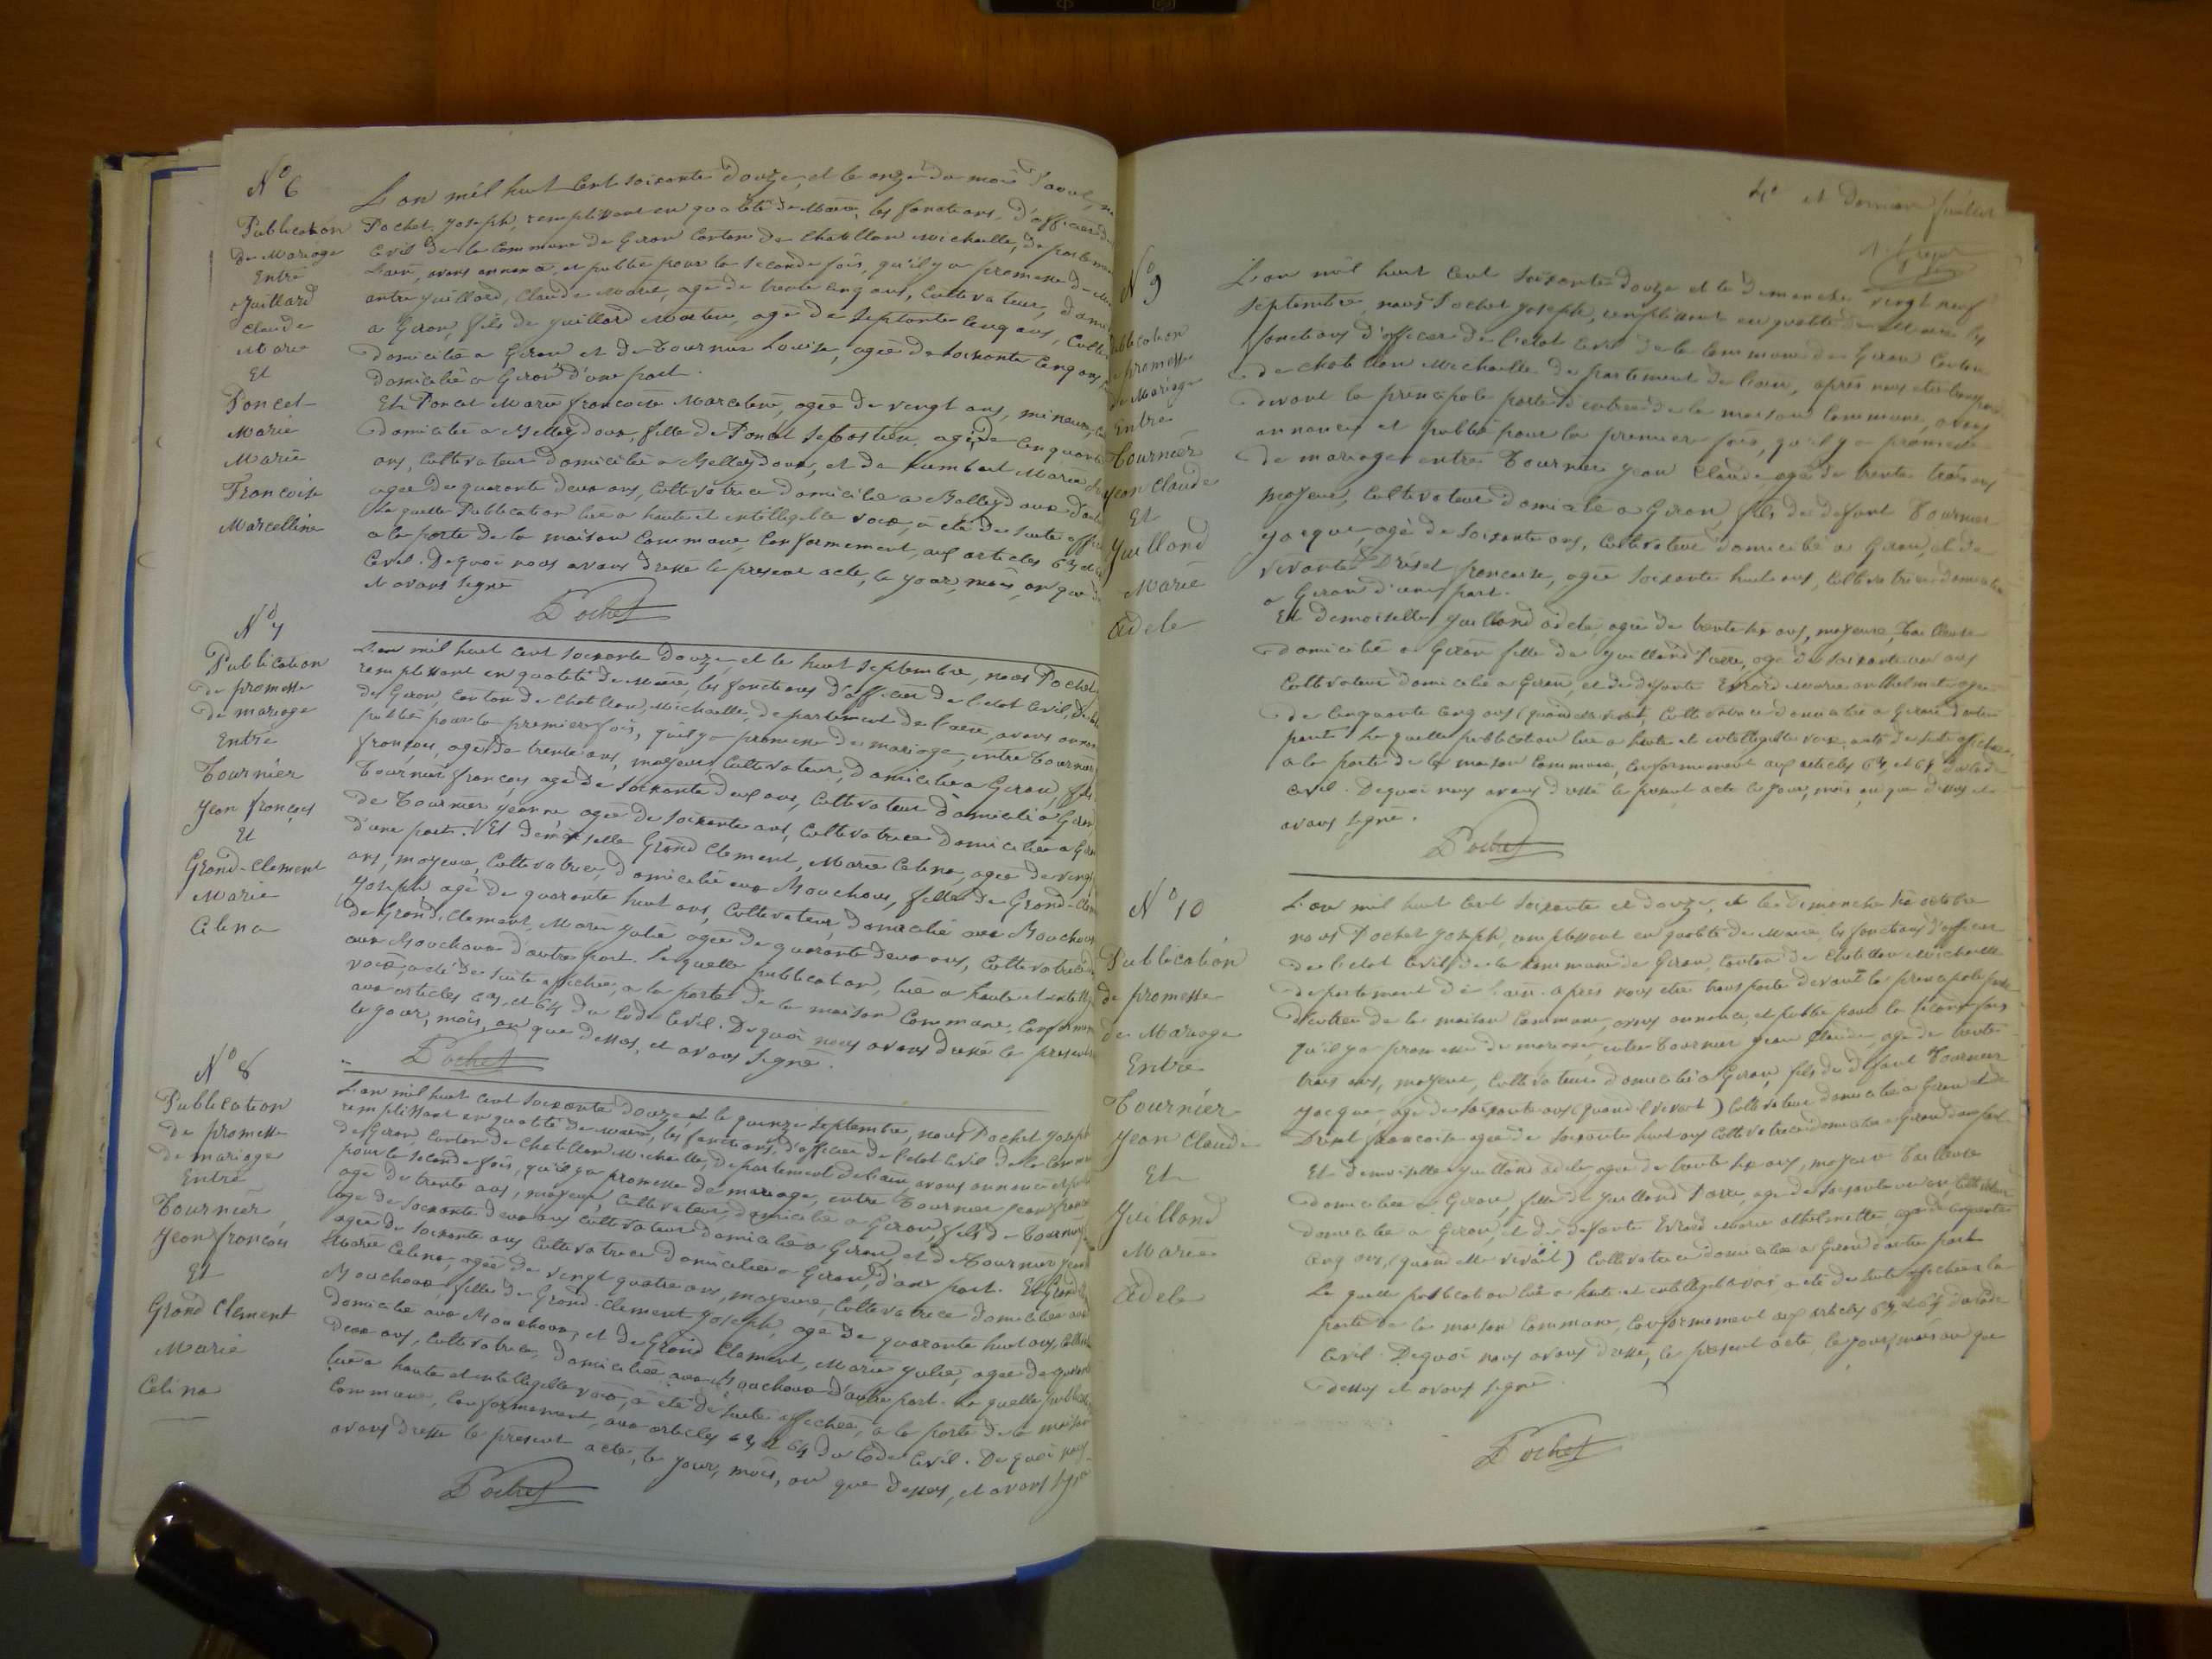 N° 6
Publication
de Mariage
Entre
Juillard
Claude
Marie
Et
Poncet
Marie
Marie
Francoise
Marcelline
L'an mil huit Cent soixante douze, et le onze du mois d'aout,
Pochet, Joseph, remplissant en qualité de Maire, les fonctions d'officier de
Civil de la Commune de Giron Canton de Chatillon Michaille, departement
L'ain, avons annoncé et publié pour la seconde fois, qu'il y a promesse de
entre Juillard, Claude Marie, agé de trente cinq ans, Cultivateur,
a Giron, fils de Juillard agé de septante cinq ans,
domicilié a Giron et de Tournier Louise, agée de soixante cinq ans
domicilié a Giron d'une part.
Et Poncet Marie francoise Marceline, agée de vingt ans, mineure,
domicilié a Belleydoux, fille de Poncet Sebastien, agé de cinquante
ans, Cultivateur domicilié a Belleydoux, et de Humbert Marie
agée de quarante deux ans, Cultivatrice domicilié a Belleydoux
La quelle Publication lue a haute et intelligible voix, a été de suite
a la porte de la maison Commune, Conformement aux articles 63 et
Civil. De quoi nous avons dressé le present acte, le jour, mois, an que
et avons signé
Pochet
N° 7
Publication
de promesse
de mariage
Entre
Tournier
Jean françois
Et
Grand-Clement
Marie
Celina
L'an mil huit cent soixante douze, et le huit septembre, nous Pochet
remplissant en qualité de Maire, les fonctions d'officier de l'etat Civil,
de Giron, Canton de Chatillon, Michaille, departement de l'ain, avons
publié pour la premiere fois, qu'il y a promesse de mariage, entre Tournier
françois, agé de trente ans, majeur Cultivateur, domicilié a Giron, fils
Tournier françois agé de soixante deux ans, Cultivateur domicilié a Giron
de Tournier Jeanne agée de soixante ans, Cultivatrice domiciliée a Giron
d'une part. Et demoiselle Grand Clement, Marie Celina, agée de vingt
ans, majeure, Cultivatrice domicilié aux Bouchoux, fille de Grand-Clement
Joseph agé de quarante huit ans, Cultivateur, domicilié aux Bouchoux
de Grand-Clement, Marie Julie agée de quarante deux ans, Cultivatrice
aux Bouchoux d'autre part. La quelle publication, lue a haute et
voix, a été de suite affichée, a la porte de la maison Commune, Conformement
aux articles 63, et 64 du Code Civil. De quoi nous avons dressé le present
le jour, mois, an que dessus, et avons signé.
Pochet
N° 8
Publication
de promesse
de mariage
Entre
Tournier,
Jean françois
Et
Grand Clement
Marie
Celina
L'an mil huit cent soixante douze, et le quinze septembre, nous Pochet Joseph
remplissant en qualité de maire, les fonctions, d'officier de l'etat Civil de la Commune
de Giron, Canton de Chatillon Michaille, departement de l'ain avons annoncé et
pour la seconde fois, qu'il y a promesse de mariage, entre Tournier Jean françois
agé de trente ans, majeur, Cultivateur, domicilié a Giron, fils de Tournier
agé de soixante deux ans Cultivateur domicilié a Giron, et de Tournier
agée de soixante ans Cultivatrice domiciliée a Giron, d'une part. Et Grand
Marie Celina, agée de vingt quatre ans, majeure, Cultivatrice domiciliée aux
Bouchoux, fille de Grand-Clement Joseph, agé de quarante huit ans,
domicilié aux Bouchoux, et de Grand Clement, Marie Julie, agée de quarante
deux ans, Cultivatrice, domiciliée aux Bouchoux d'autre part. La quelle publication
lue a haute et intelligible voix, a été de suite affichée, a la porte de la maison
Commune, Conformement, aux articles 63 et 64 du Code Civil. De quoi nous
avons dressé le present acte, le jour, mois, an que dessus, et avons signé
Pochet
4e et dernier feuillet
N° 9
Publication
de promesse
de Mariage
Entre
Tournier
Jean Claude
Et
Juilland
Marie
Adele
L'an mil huit Cent soixante douze et le dimanche vingt neuf
septembre, nous Pochet Joseph, remplissant en qualité de Maire les
fonctions d'officier de l'etat Civil de la Commune de Giron Canton
de Chatillon Michaille departement de l'ain, après nous etre transporté
devant la principale porte d'entrée de la maison Commune, avons
annoncé et publié pour la premier fois, qu'il y a promesse
de mariage entre Tournier Jean Claude agé de trente trois ans
majeur, Cultivateur domicilié a Giron, fils de defunt Tournier
Jacque, agé de soixante ans, Cultivateur domicilié a Giron, et de
vivante francoise, agée soixante huit ans, Cultivatrice domiciliée
a Giron d'une part.
Et demoiselle Juilland adele, agée de trente six ans, majeure, Tailleuse
domicilié a Giron fille de Juilland Pierre, agé de soixante un ans
Cultivateur domicilié a Giron, et de defunte Evrard Marie agée
de cinquante cinq ans (quand elle vivait, Cultivatrice domiciliée a Giron d'autre
part. La quelle publication lue a haute et intelligible voix a été de suite affichée,
a la porte de la maison Commune, Conformement aux articles 63, et 64 du Code
Civil. De quoi nous avons dressé le present acte le jour, mois, an que dessus et
avons signé.
Pochet
N° 10
Publication
de promesse
de Mariage
Entre
Tournier
Jean Claude
Et
Juilland
Marie
Adele
L'an mil huit Cent soixante et douze, et le dimanche six octobre
nous Pochet Joseph, remplissant en qualité de Maire, les fonctions d'officier
de l'etat Civil de la Commune de Giron, Canton de Chatillon Michaille
departement de l'ain. après nous etre transporté devant la principale porte
d'entrée de la maison Commune, avons annoncé, et publié pour la seconde fois
qu'il y a promesse de mariage, entre Tournier Jean Claude, agé de trente
trois ans, majeur, Cultivateur domicilié a Giron, fils de defunt Tournier
Jacque, agé de soixante ans (quand il vivait) Cultivateur domicilié a Giron et de
francoise agée de soixante huit ans Cultivatrice domiciliée a Giron d'une part.
Et demoiselle Juilland adele, agée de trente six ans, majeure Tailleuse
domiciliée a Giron, fille de Juilland Pierre, agé de soixante un an, Cultivateur
domicilié a Giron, et de defunte Evrard Marie agée de cinquante
cinq ans, (quand elle vivait) Cultivatrice domiciliée a Giron d'autre part
La quelle publication lue a haute et intelligible voix a été de suite affichée a la
porte de la maison Commune, Conformement aux articles 63 et 64 du Code
Civil. De quoi nous avons dressé, le present acte, le jour, mois an que
dessus et avons signé.
Pochet